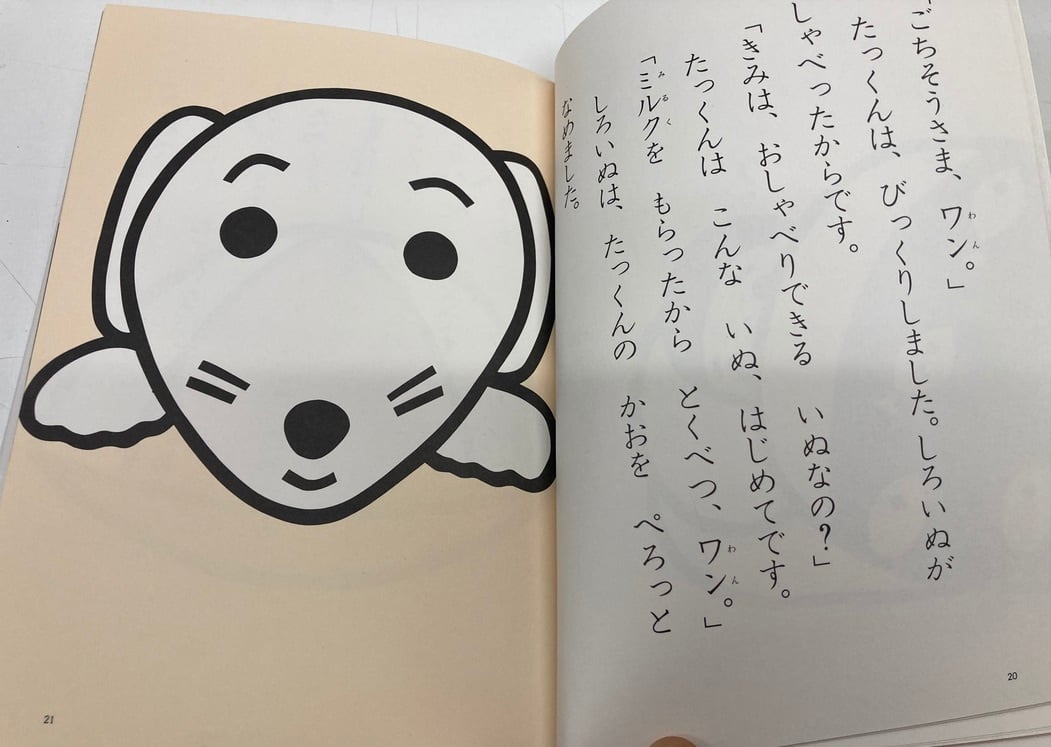 「ごちそうさま、ワン。」
たっくんは、びっくりしました。しろいぬが
しゃべったからです。
「きみは、おしゃべりできる いぬなの?」
たっくんは こんな いぬ、はじめてです。
「ミルクを もらったから とくべつ、ワン。」
しろいぬは、たっくんの かおを ぺろっと
なめました。
わん
みるく
わん
20
21